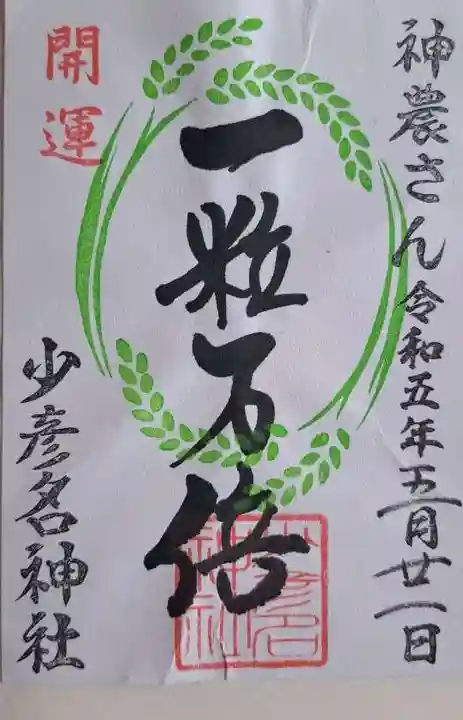 神農さん令和五年五月廿一日
開運
一粒万倍
少彦名神社
少彦名神社